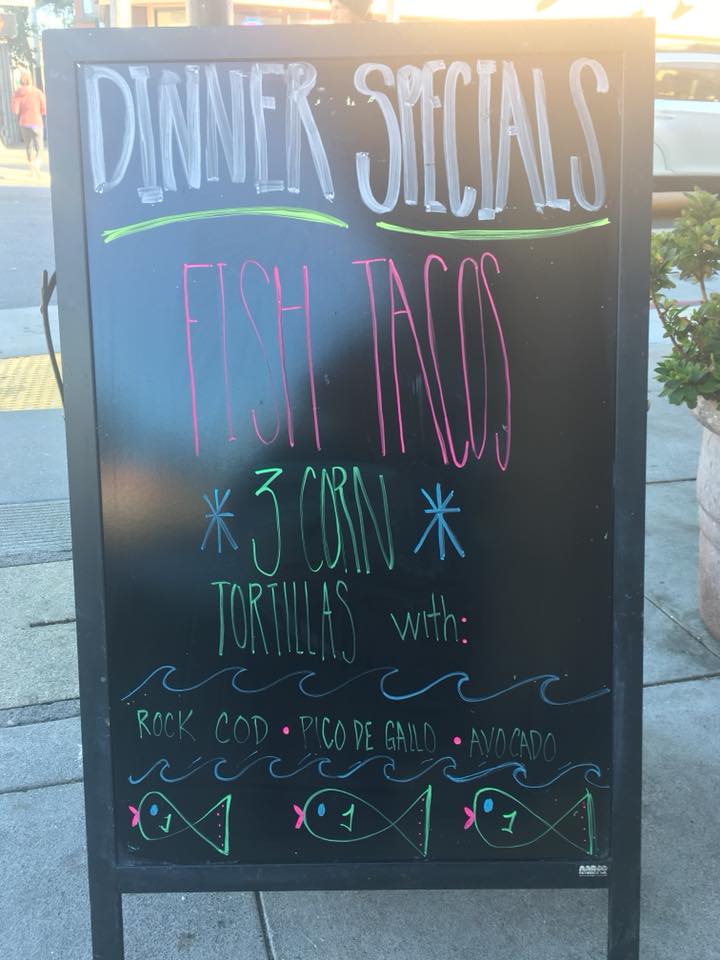 DINNER SPECIALS
FISH TACOS
* 3 CORN *
TORTILLAS with:
ROCK COD • PICO DE GALLO • AVOCADO